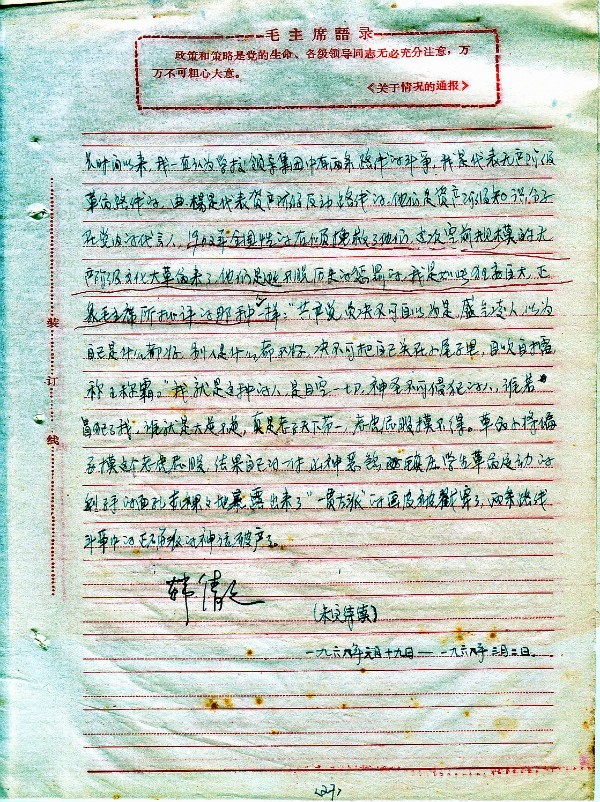 毛主席語录
政策和策略是党的生命、各级领导同志无必充分注意，万
万不可粗心大意。
《关于情况的通报》
长时间以来，我一直认为学校领导集团中有两条路线的斗争，我是代表无产阶级
革命路线的，曲楊是代表资产阶级反动路线的，他们是资产阶级知识分子
在党内的代言人，全国性的了他们，这次空前规模的无
产阶级文化大革命来了，他们是逃不脱历史的惩罚的，我是如此狂妄自大，正
象毛主席所批评的那种一样："共产党员决不可自以为是，盛气凌人，以为
自己是什么都好，别人是什么都不好，决不可把自己关在小房子里，自吹自擂
称王称霸。"我就是这种的人，是目空一切，神圣不可侵犯的人，谁若
冒犯了我，谁就是大逆不道，真是老子天下第一，老虎屁股摸不得。革命小将偏
要摸这个老虎屁股，结果自己的一付凶神恶煞，镇压学生革命运动的
刽子手的面孔赤裸裸地暴露出来了"一贯左派"的画皮被戳穿了，两条路线
斗争中的正确的神话破产了。
韩倩
(未完待续)
一九六八年元月十九日——一九六八年三月二日。
(27)
装
订
线